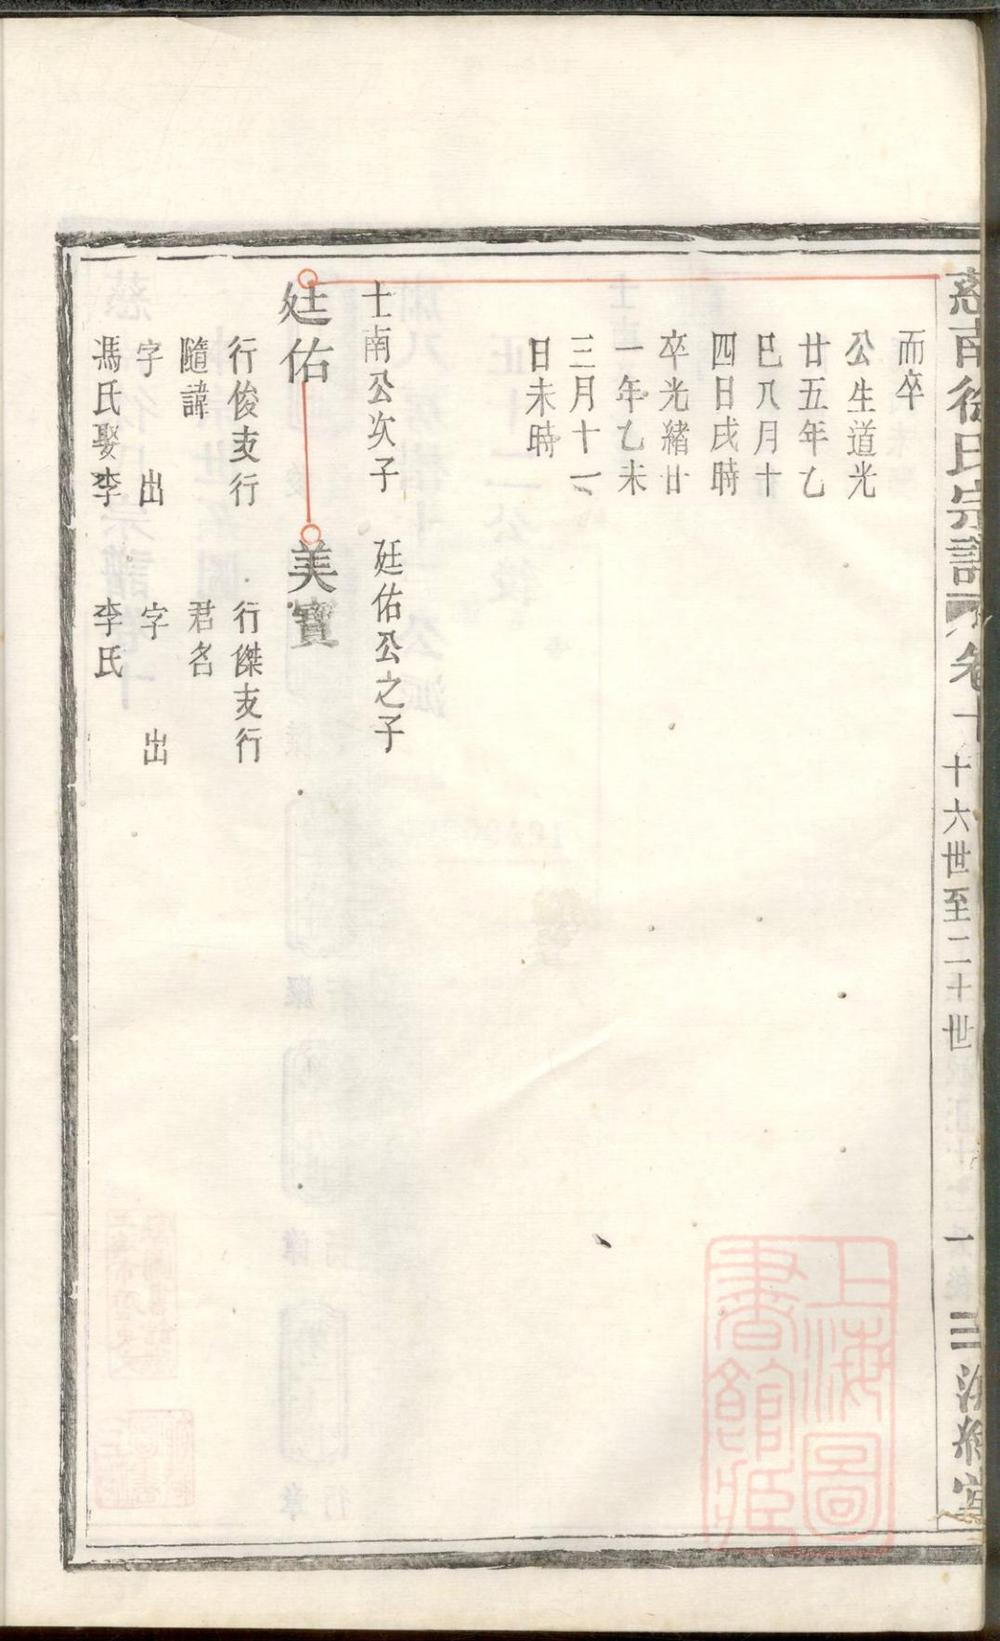 慈南徐氏宗譜 卷十 十六世至二十世 一 三
而卒
公生道光
廿五年乙
巳八月十
四日戌時
卒光緒廿
一年乙未
三月十一
日未時
士南公次子
廷佑
行俊支行
隨諱
字 出
馮氏娶李
廷佑公之子
美寶
行傑支行
君名
字 出
李氏
上海圖
書館藏